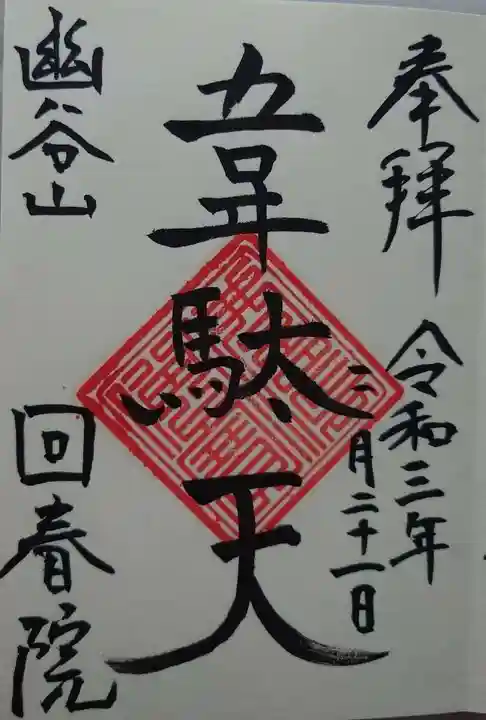 奉拝
令和三年
二月二十一日
韋駄天
幽谷山
回春院